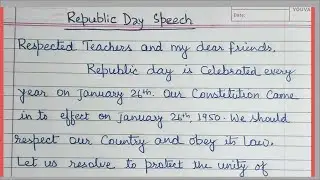 Date:
YOUVA
Republic Day Speech
Respected Teachers and my dear friends.
Republic day is Celebrated every
year on January 26th. Our Constitution Came
in to effect on January 26th, 1950. We should
respect our Country and obey its Law.
Let us resolve to protect the unity of